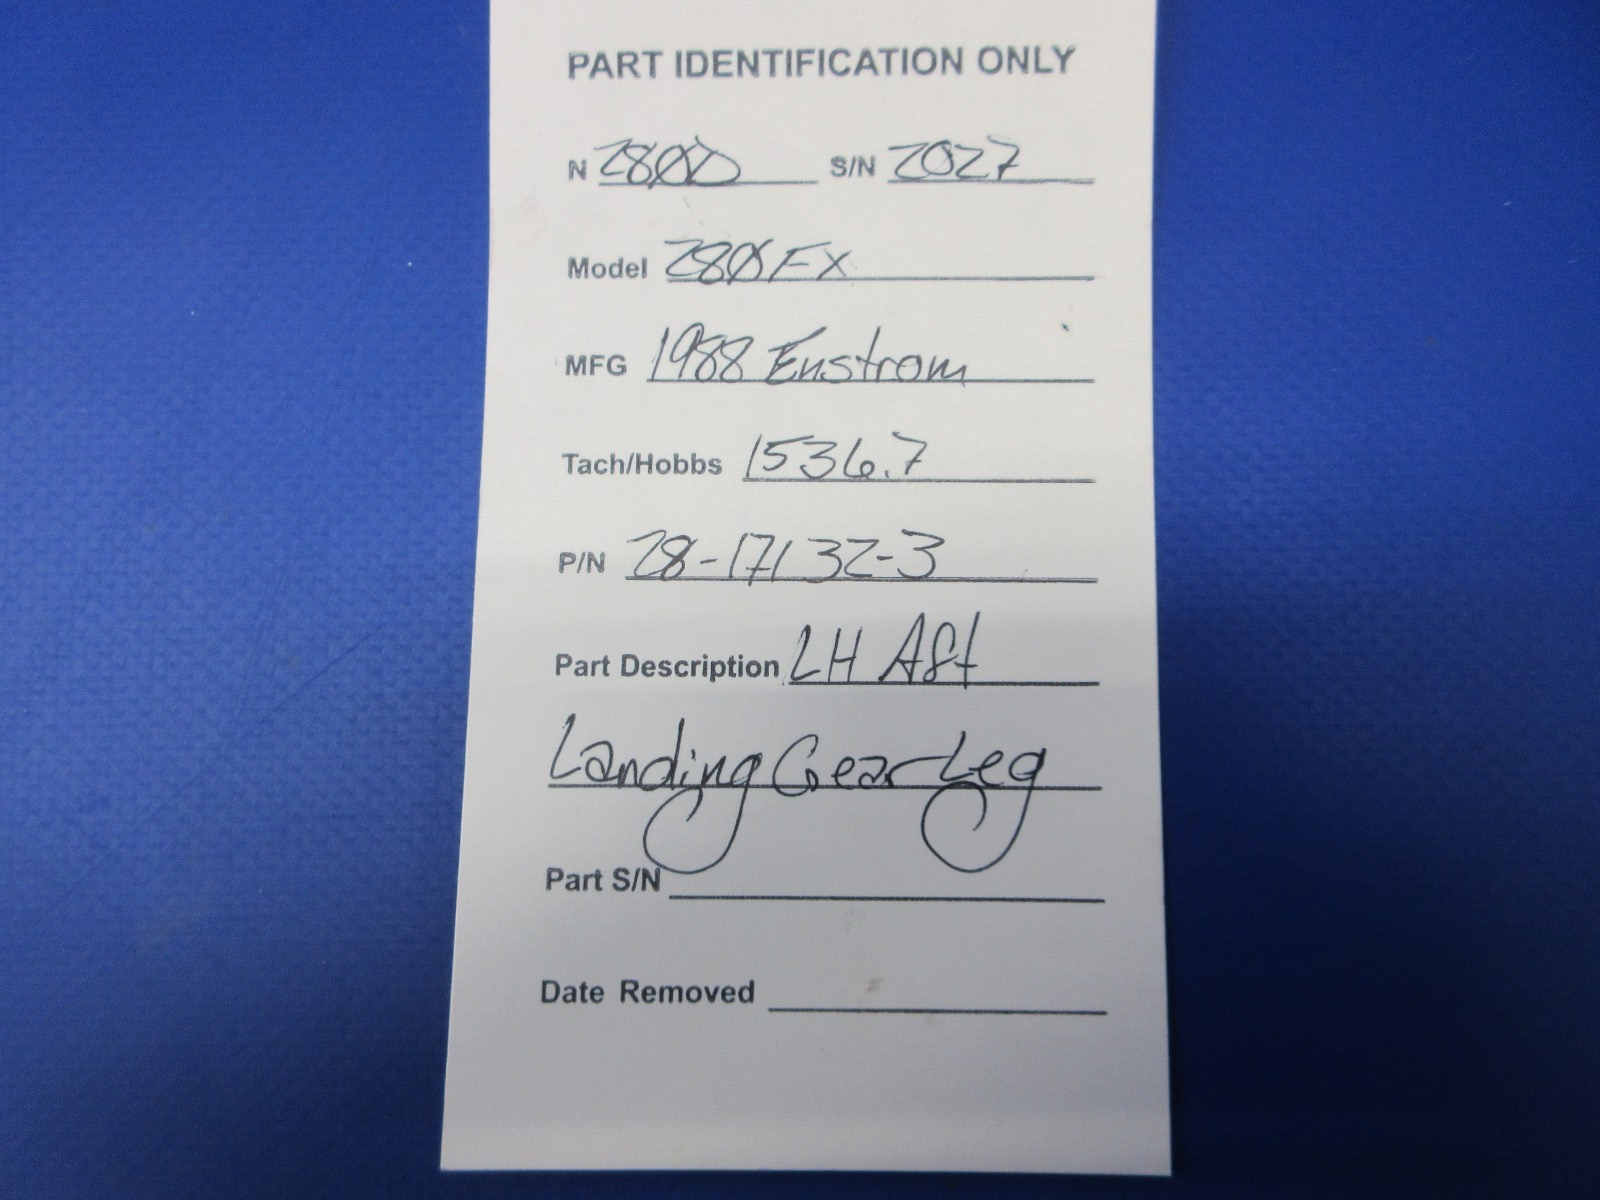 PART IDENTIFICATION ONLY
N 280D S/N 2027
Model 280FX
MFG 1988 Enstrom
Tach/Hobbs 1536.7
P/N 28-17132-3
Part Description LH Aft
Landing Gear Leg
Part S/N
Date Removed